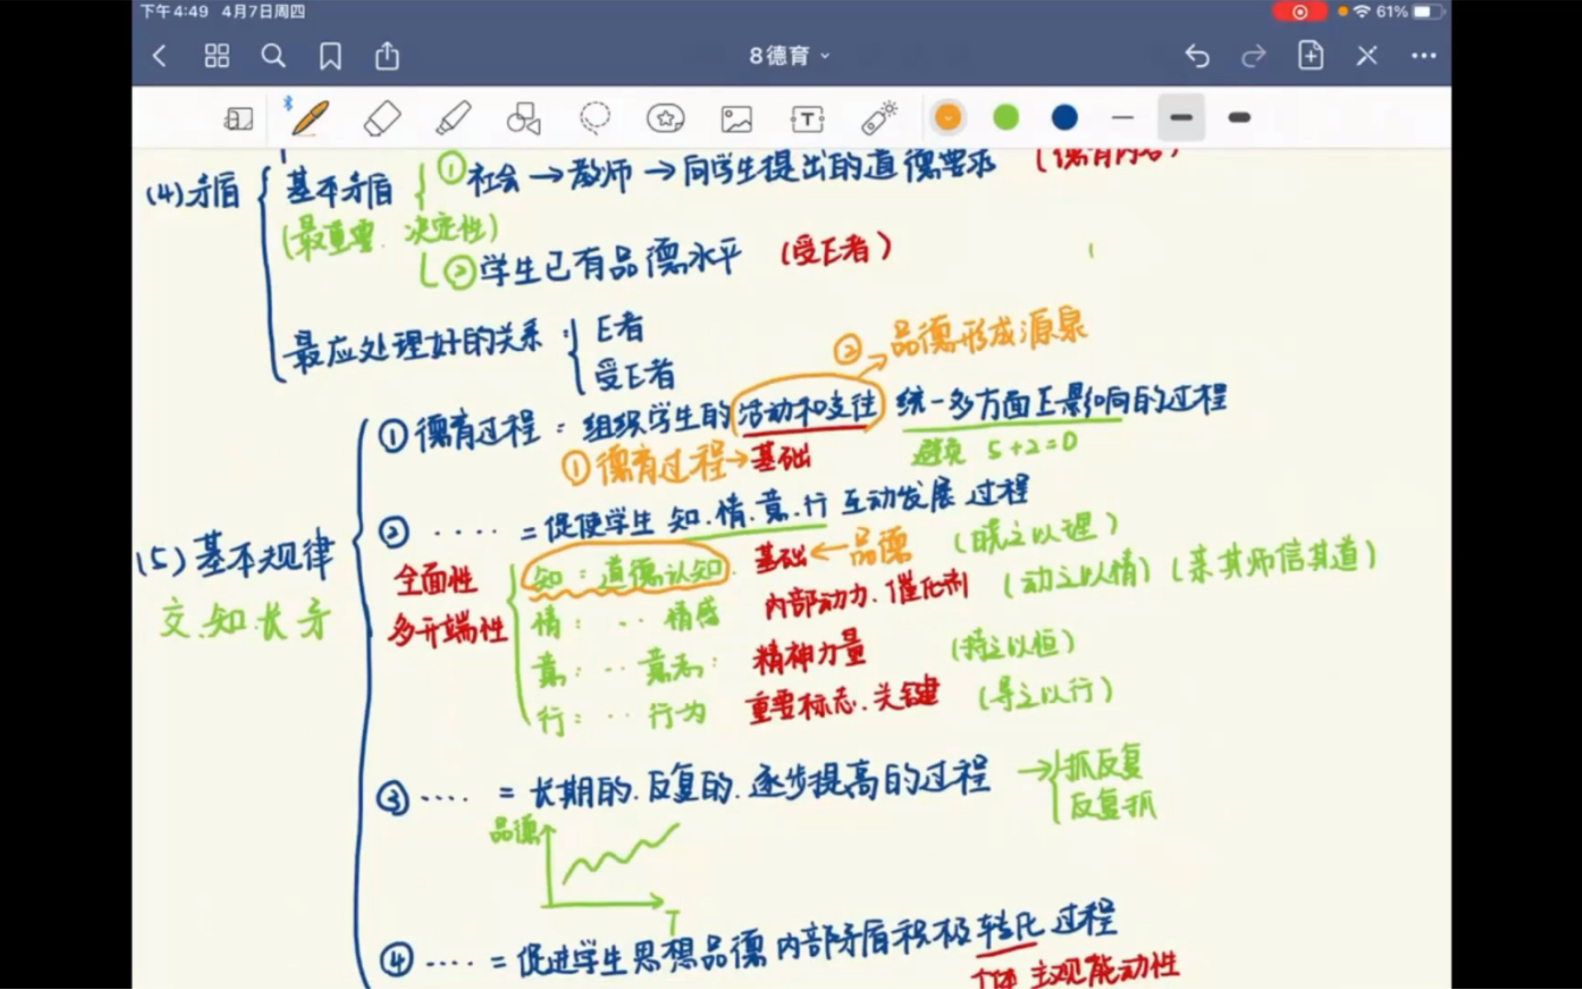 下午4:49 4月7日周四
61%
8德育
(4)矛盾
基本矛盾
(最重要. 决定性)
①社会→教师→向学生提出的道德要求 (德育内容)
②学生已有品德水平 (受E者)
最应处理好的关系:
E者
受E者
②品德形成源泉
①德育过程= 组织学生的活动和交往 统一多方面E影响的过程
①德育过程→基础
避免 5+2=0
② ···· =促使学生 知.情.意.行 互动发展 过程
(5)基本规律
交.知.长.矛
全面性
多开端性
知: 道德认知. 基础←品德 (晓之以理)
情: ·· 情感 内部动力.催化剂 (动之以情) (亲其师信其道)
意: ·· 意志: 精神力量 (持之以恒)
行: ·· 行为 重要标志.关键 (导之以行)
③ ···· = 长期的.反复的.逐步提高的过程 →
抓反复
反复抓
品德
T
④ ···· =促进学生思想品德内部矛盾积极转化过程
个体 主观能动性